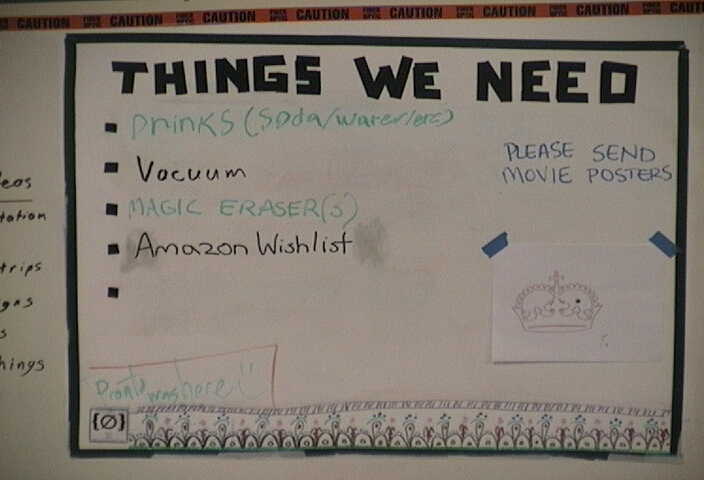 CAUTION CAUTION CAUTION CAUTION CAUTION CAUTION CAUTION CAUTION
THINGS WE NEED
Drinks (Soda/water/etc)
Vacuum
MAGIC ERASER(S)
Amazon Wishlist
PLEASE SEND
MOVIE POSTERS
was here!
{Ø}
eos
tation
trips
igns
s
hings